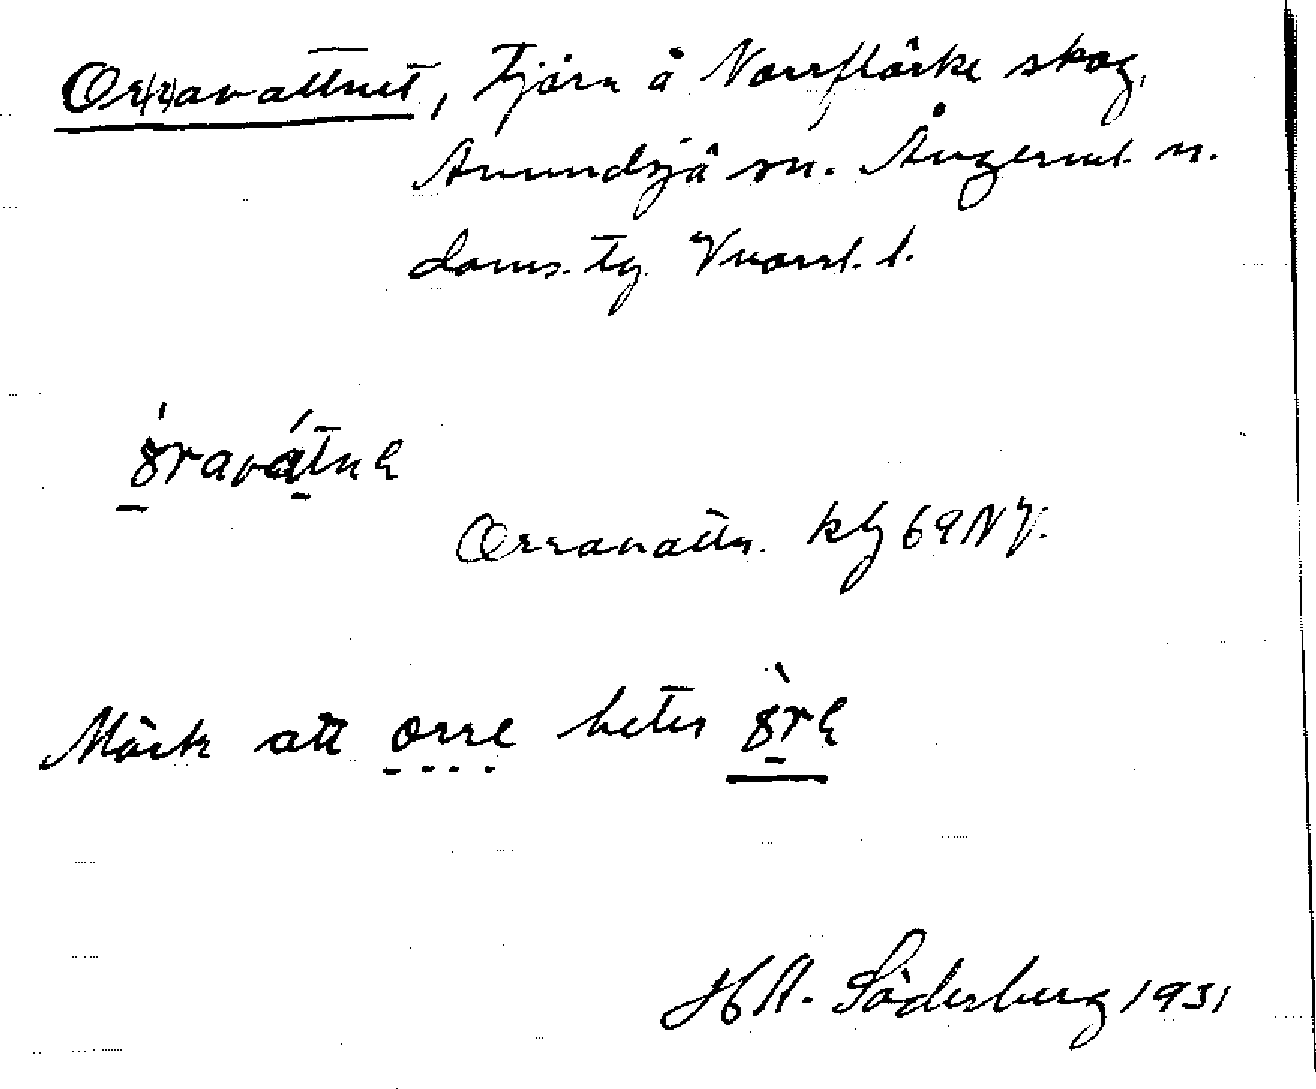 Or(r)avattnet, Tjärn å Norrflärke skog,
Anundsjö sn. Ångerml. n.
doms. tg. Vnorrl. l.
òravátnɐ
Orravattn. kbl 69 NV.
Märk att orre heter òrɐ
H A. Söderberg 1931